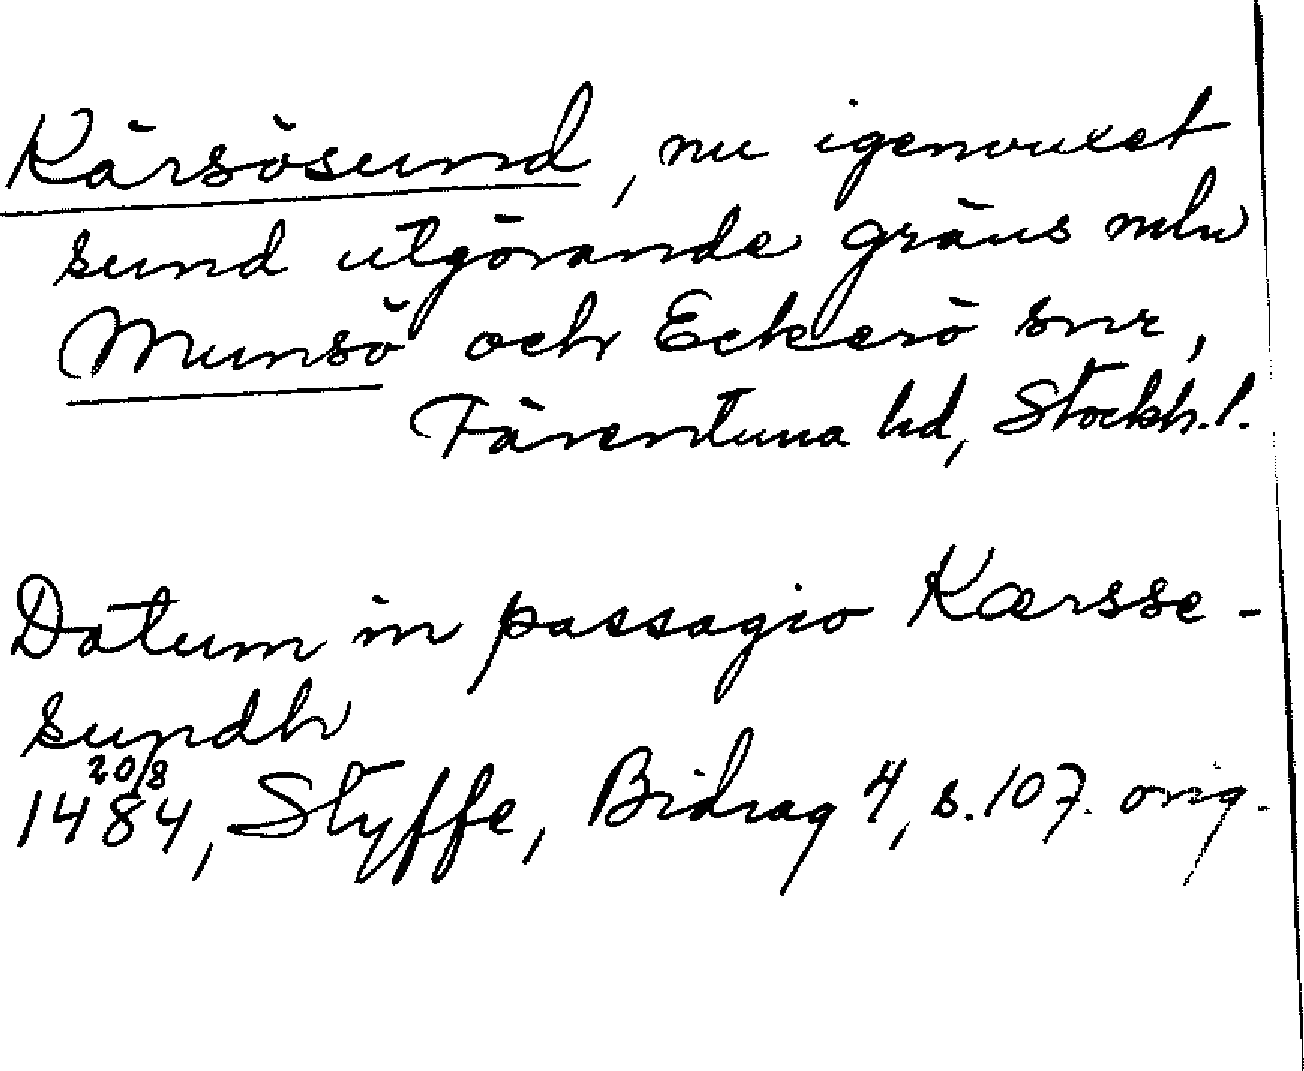 Kärsösund, nu igenvuxet
sund utgörande gräns mln
Munsö och Eckerö snr,
Färentuna hd, Stockh.l.
Datum in passagio Kærsse-
sundh
20/8
1484, Styffe, Bidrag 4, s. 107. orig.